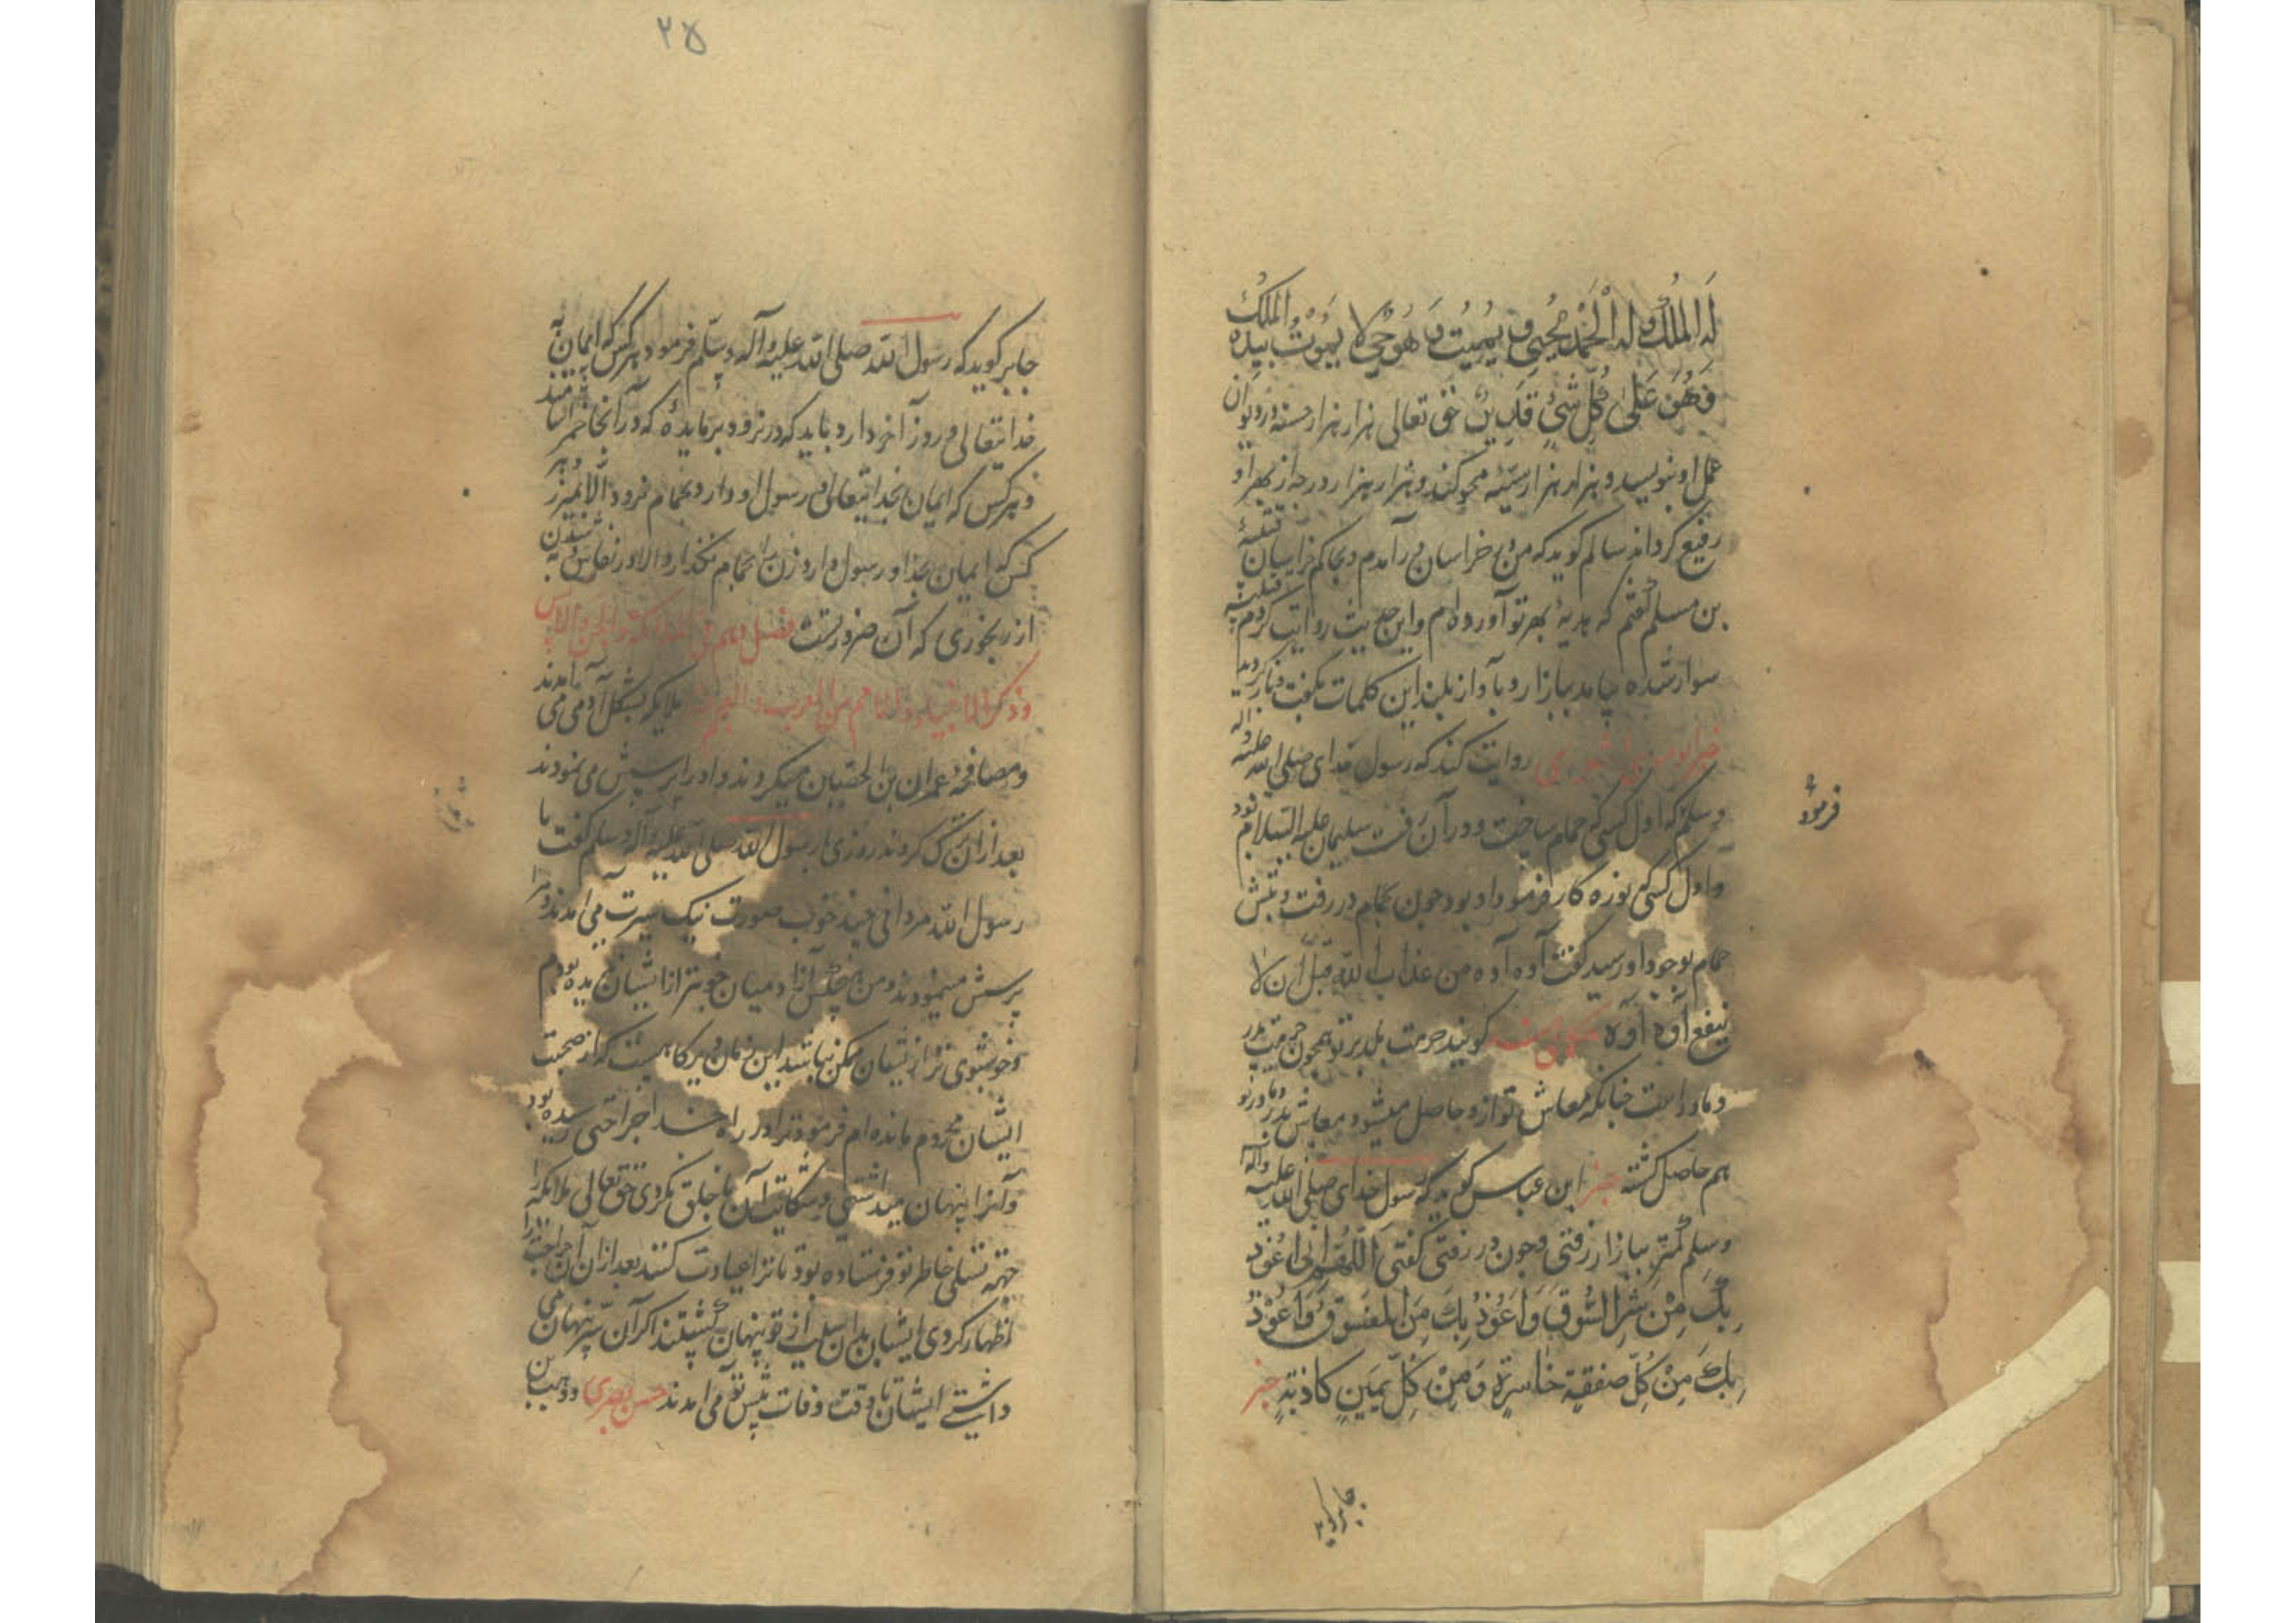 لَهُ الْمُلْكُ وَلَهُ الْحَمْدُ يُحْيِي وَ يُمِيتُ وَ هُوَ حَيٌّ لا يَمُوتُ بيده الملك
وَهُوَ عَلَىٰ كُلِّ شَيْءٍ قَدِيرٌ حق تعالی هزار هزار حسنه در دیوان
عمل او بنویسد و هزار هزار سیئه محو کند و هزار هزار درجه از بهر او
رفیع کرداند سالم کوید که من بخراسان در آمدم و بحاکم خراسان قتیبهٔ
بن مسلم کفتم که هدیهٔ بهر تو آورده ام و این حدیث روایت کردم قتیبه
سوار شده بیامد ببازار و بآواز بلند این کلمات بکفت و باز کردید
روایت کند که رسول خدای صلی الله علیه واله
وسلم که اول کسی که حمام ساخت و در آن رفت سلیمان علیه السلام بود
و اول کسی نوزه کار فرمود او بود چون بحمام در رفت و تبش
حمام بوجود او رسید کفت آوه آوه من عذاب الله قبل ان لا
ینفع آوه آوه کویند حرمت بلد بر تو همچون حرمت پدر
و مادر است چنانکه معاش تو ازو حاصل میشود معاش پدر و مادر تو
هم حاصل کشته خبر ابن عباس کوید که رسول خدای صلی الله علیه واله
وسلم کمتر ببازار رفتی و چون در رفتی کفتی اللهم انی اعوذ
بِكَ مِنْ شَرِّ السُّوقِ وَاَعُوذُ بِكَ مِنَ الفسوق وَاَعُوذُ
بِكَ مِنْ كُلِّ صفقةٍ خاسرةٍ وَمِنْ كُلِّ يَمِينٍ كاذبةٍ خبر
فرمود
جابر کوید
۲۵
جابر کوید که رسول الله صلی الله علیه وآله وسلم فرمود هر کس که ایمان به
خدایتعالی و روز آخر دارد باید که در نرود بر مایدهٔ که در آنجا خمر آشامند
و هر کس که ایمان بخدایتعالی و رسول او دارد بحمام نرود الا بمیزر و هر
کس که ایمان بخدا و رسول دارد زن را بحمام نکذارد الا در نفاس و به شدن
از رنجوری که آن ضرورتست
ملایکه بشکل آدمی می آمدند
و مصافحه عمران بن الحصین میکردند و او را پرسش می نمودند
بعد از آن ترک کردند روزی با رسول الله صلی الله علیه وآله وسلم کفت یا
رسول الله مردانی چند خوب صورت نیک سیرت می آمدند و مرا
پرسش مینمودند و من هیچکس از آدمیان خوبتر از ایشان ندیده بودم
و خوشبوی تر از ایشان ممکن نباشد این زمان دیرکاهیست که از صحبت
ایشان محروم مانده ام فرمود ترا در راه خدا جراحتی رسیده بود
و آنرا پنهان میداشتی و شکایت آن با خلق نکردی حق تعالی ملایکه را
جهة تسلی خاطر تو فرستاده بود تا ترا عیادت کنند بعد از آن آن جراحت را
اظهار کردی ایشان بدان سبب از تو پنهان کشتند اکر آن سر پنهان می
داشتی ایشان تا وقت وفات پیش تو می آمدند حسن بصری